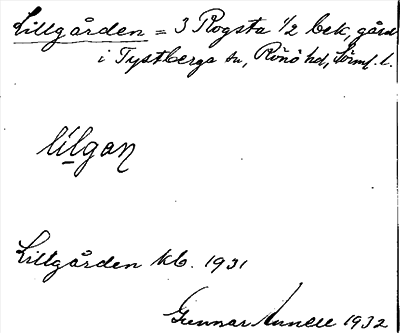 Lillgården = 3 Rogsta 1/2 bek, gård
i Tystberga sn, Rönö hd, Sörml. l.
lílgan
Lillgården kb. 1931
Gunnar Linnell 1932